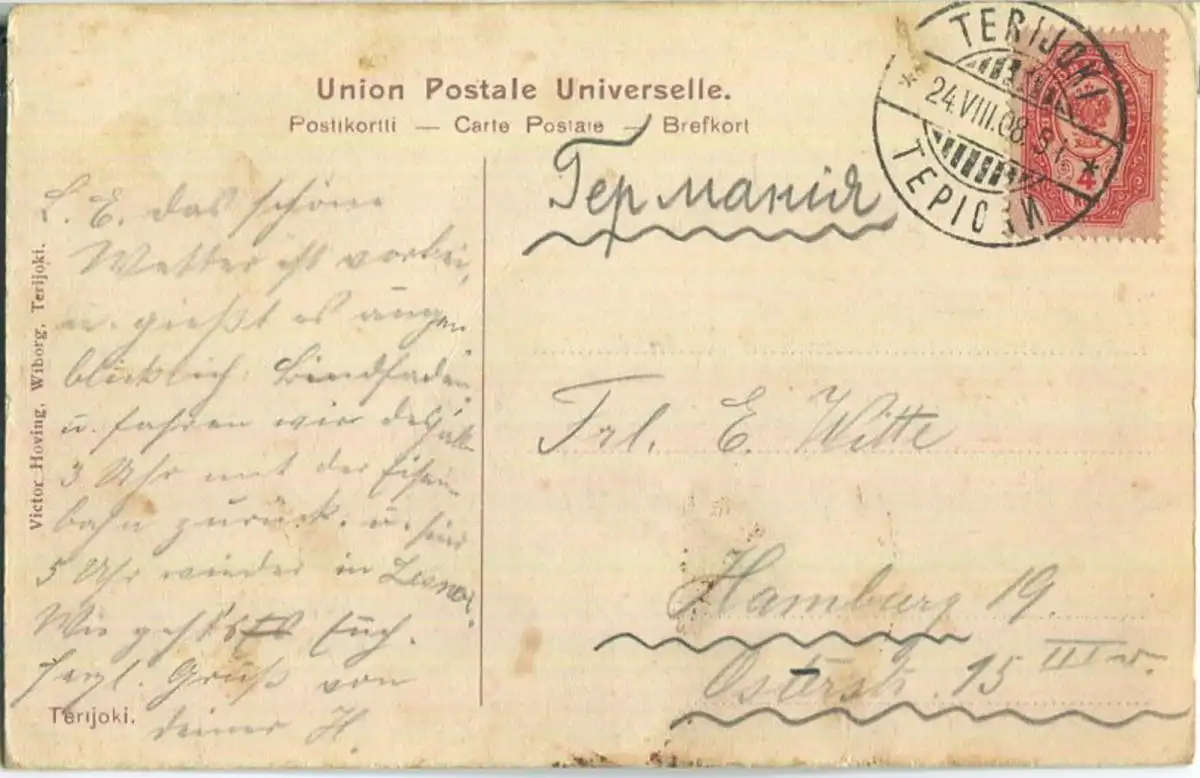 Union Postale Universelle.
Postikortti — Carte Postale — Brefkort
TERIJOKI
24.VIII.08
ТЕРІОКИ
4
Германія
L. E. das schöne
Wetter ist vorbei,
u. gießt es augen
blicklich Bindfaden
u. fahren wir deshalb
3 Uhr mit der Eisen
bahn zurück. u. sind
5 Uhr wieder in Lesnoi.
Wie geht's Euch.
Herzl. Gruß von
deiner H.
Frl. E. Witte
Hamburg 19.
Osterstr. 15 III r.
Victor Hoving, Wiborg, Terijoki.
Terijoki.